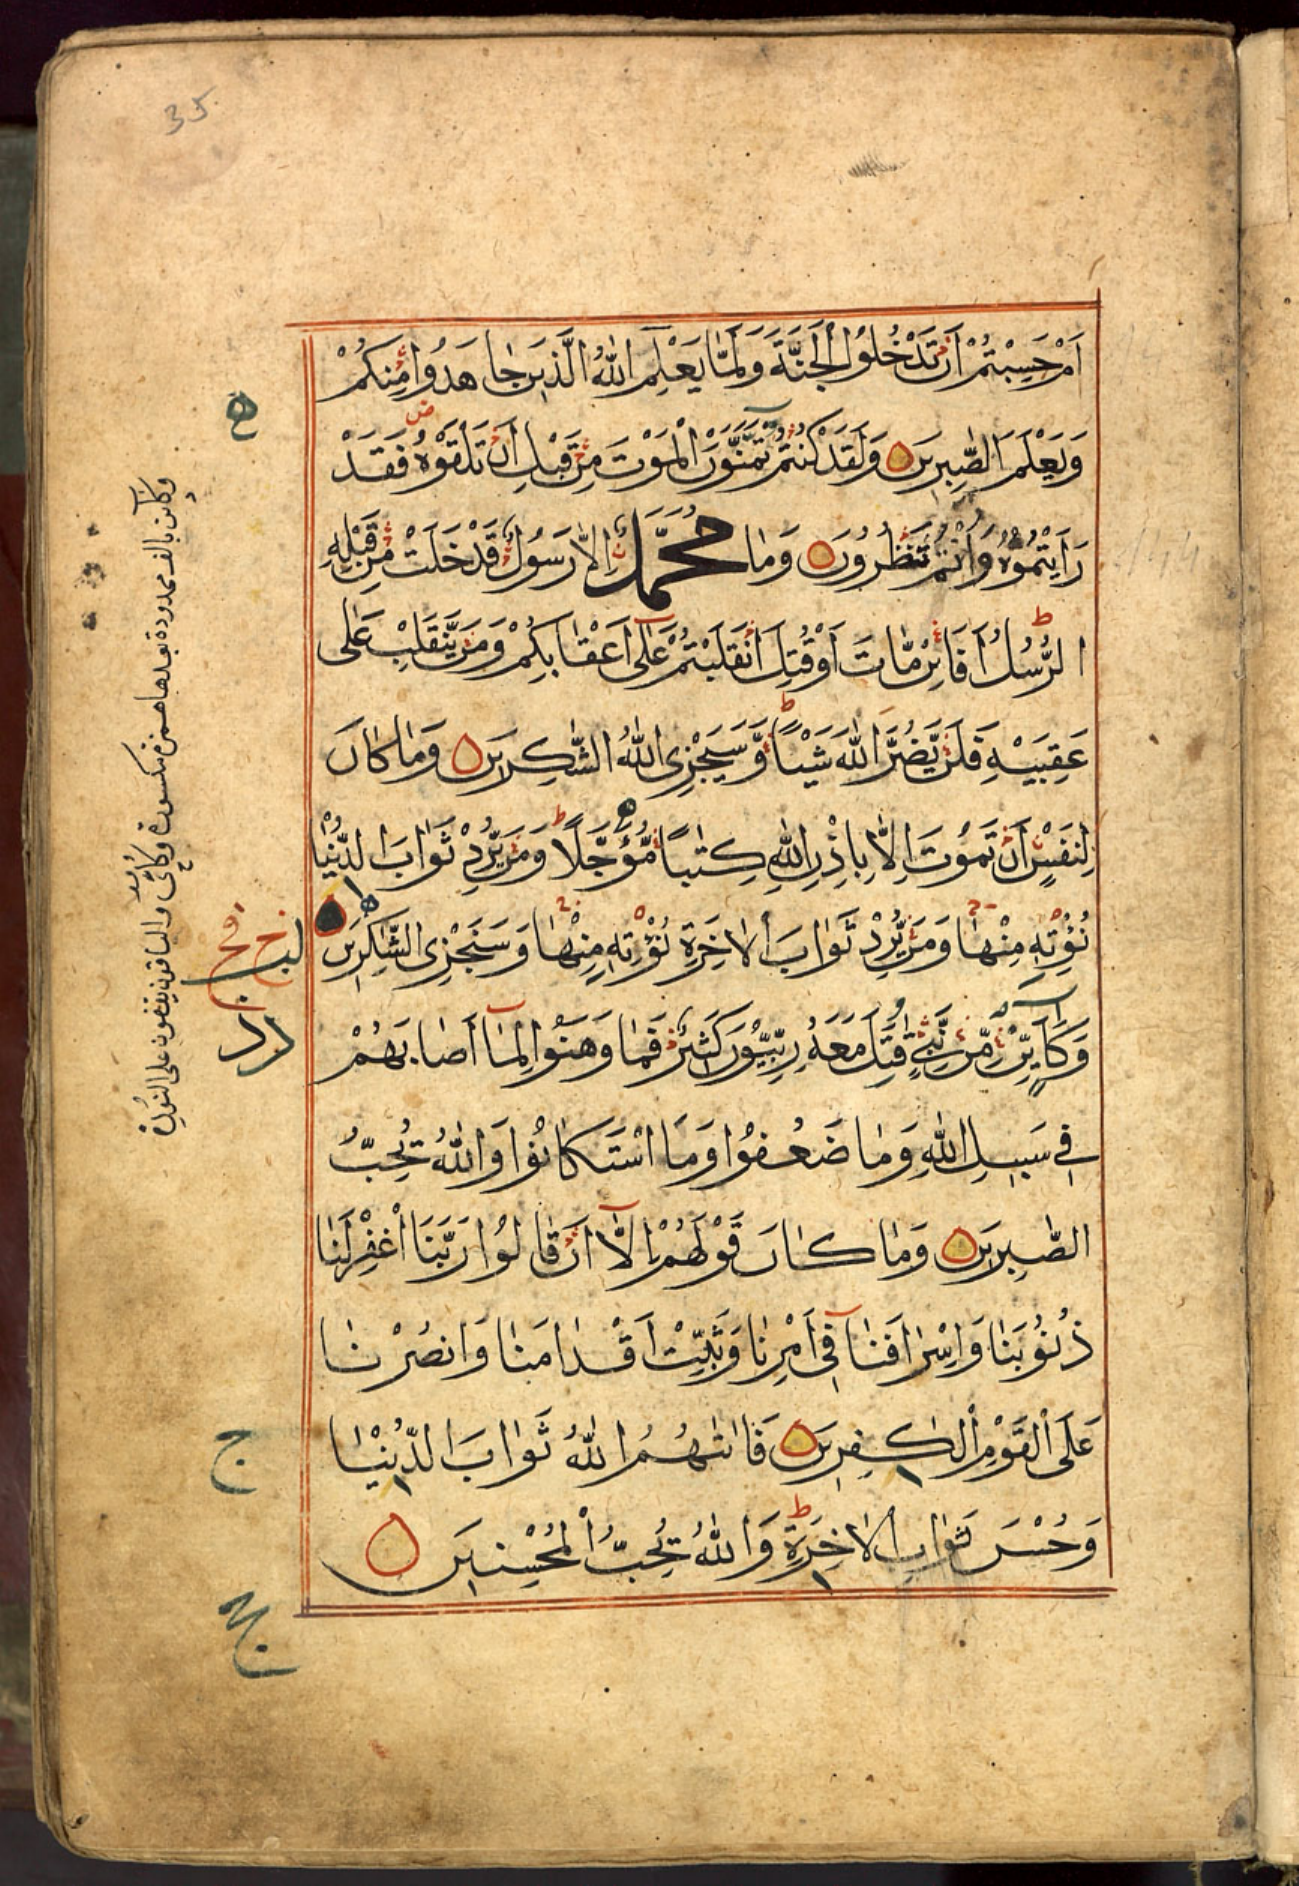 35
اَمْ حَسِبْتُمْ اَنْ تَدْخُلُوا الْجَنَّةَ وَلَمَّا يَعْلَمِ اللّٰهُ الَّذِينَ جَاهَدُوا مِنْكُمْ
وَيَعْلَمَ الصّٰبِرِينَ وَلَقَدْ كُنْتُمْ تَمَنَّوْنَ الْمَوْتَ مِنْ قَبْلِ اَنْ تَلْقَوْهُ فَقَدْ
رَاَيْتُمُوهُ وَاَنْتُمْ تَنْظُرُونَ وَمَا مُحَمَّدٌ اِلَّا رَسُولٌ قَدْ خَلَتْ مِنْ قَبْلِهِ
الرُّسُلُ اَفَائِنْ مَاتَ اَوْ قُتِلَ انْقَلَبْتُمْ عَلٰى اَعْقَابِكُمْ وَمَنْ يَنْقَلِبْ عَلٰى
عَقِبَيْهِ فَلَنْ يَضُرَّ اللّٰهَ شَيْئًا وَسَيَجْزِى اللّٰهُ الشّٰكِرِينَ وَمَا كَانَ
لِنَفْسٍ اَنْ تَمُوتَ اِلَّا بِاِذْنِ اللّٰهِ كِتٰبًا مُؤَجَّلًا وَمَنْ يُرِدْ ثَوَابَ الدُّنْيَا
نُؤْتِهِ مِنْهَا وَمَنْ يُرِدْ ثَوَابَ الْاٰخِرَةِ نُؤْتِهِ مِنْهَا وَسَنَجْزِى الشّٰكِرِينَ
وَكَاَيِّنْ مِنْ نَبِيٍّ قٰتَلَ مَعَهُ رِبِّيُّونَ كَثِيرٌ فَمَا وَهَنُوا لِمَا اَصَابَهُمْ
فِى سَبِيلِ اللّٰهِ وَمَا ضَعُفُوا وَمَا اسْتَكَانُوا وَاللّٰهُ يُحِبُّ
الصّٰبِرِينَ وَمَا كَانَ قَوْلَهُمْ اِلَّا اَنْ قَالُوا رَبَّنَا اغْفِرْ لَنَا
ذُنُوبَنَا وَاِسْرَافَنَا فِى اَمْرِنَا وَثَبِّتْ اَقْدَامَنَا وَانْصُرْنَا
عَلَى الْقَوْمِ الْكٰفِرِينَ فَاٰتٰهُمُ اللّٰهُ ثَوَابَ الدُّنْيَا
وَحُسْنَ ثَوَابِ الْاٰخِرَةِ وَاللّٰهُ يُحِبُّ الْمُحْسِنِينَ
وكائن بالف ممدودة بعدها همزة مكسورة وكأى والباقون يقفون على النون